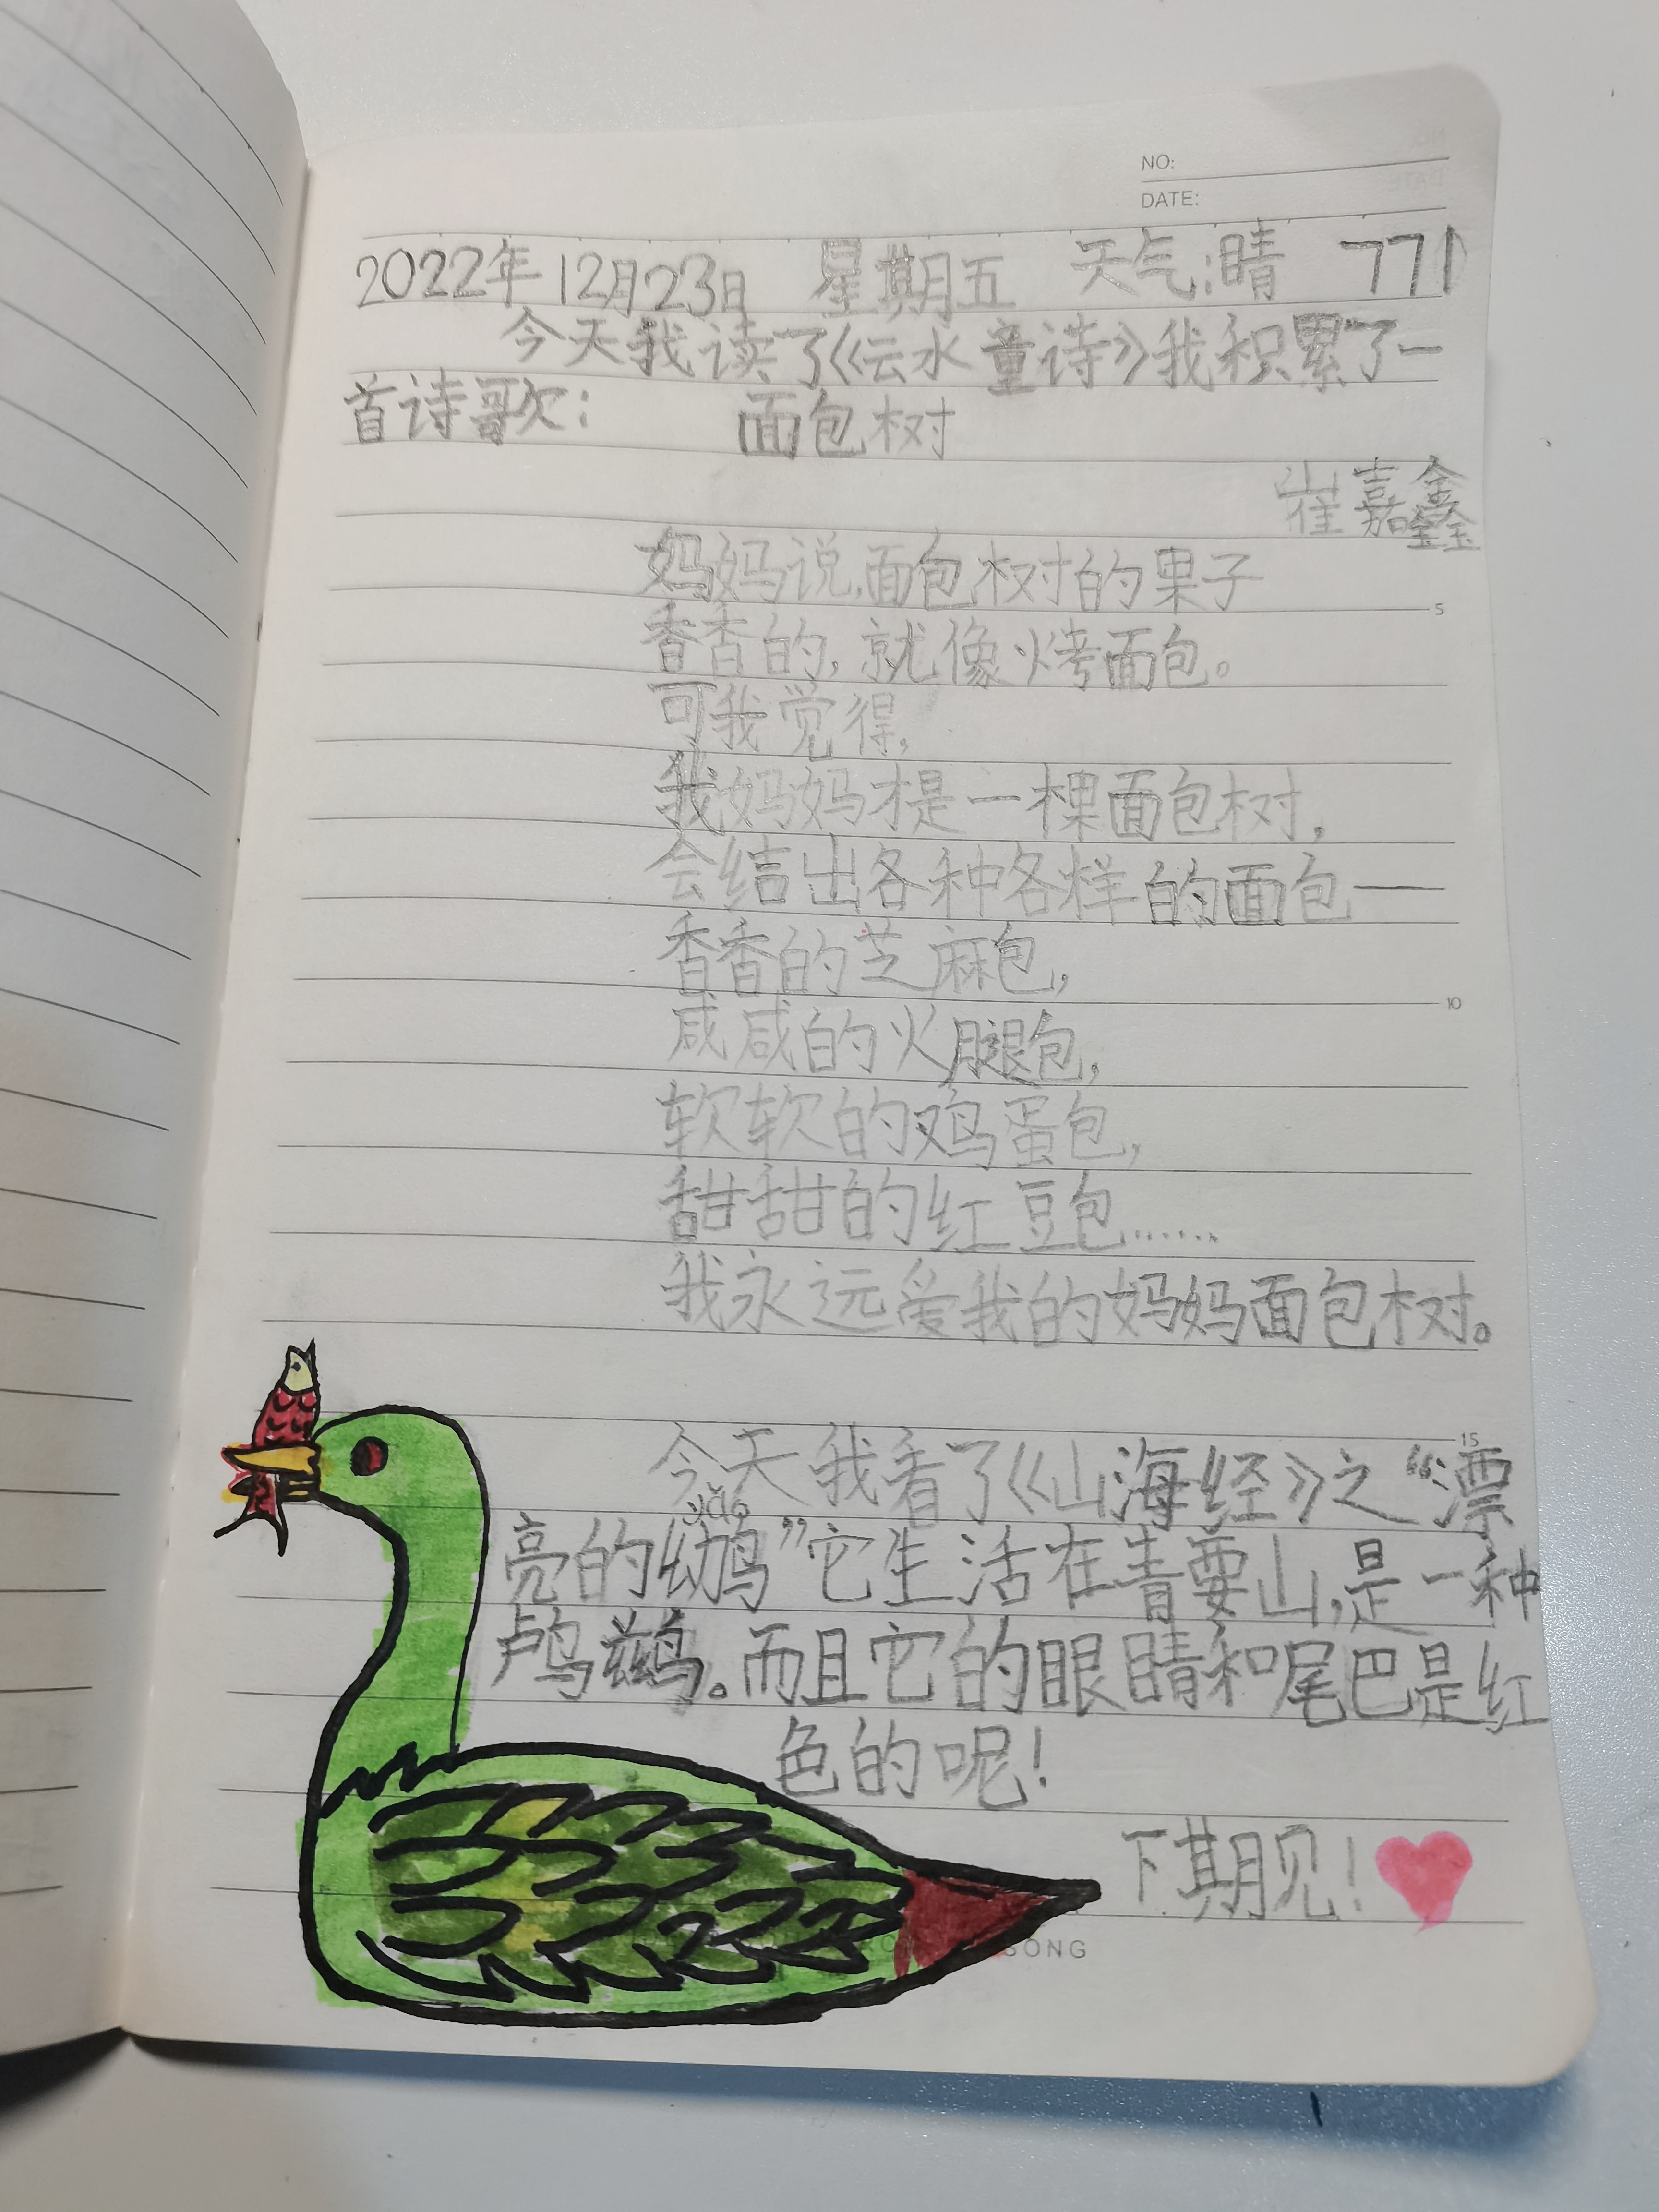 NO:
DATE:
2022年12月23日 星期五 天气:晴 771
今天我读了《云水童诗》我积累了一
首诗歌: 面包树
崔嘉鑫
妈妈说,面包树的果子
香香的,就像烤面包。
可我觉得,
我妈妈才是一棵面包树,
会结出各种各样的面包——
香香的芝麻包,
咸咸的火腿包,
软软的鸡蛋包,
甜甜的红豆包……
我永远爱我的妈妈面包树。
今天我看了《山海经》之“漂
yǎo
亮的鴢”它生活在青要山,是一种
鸬鹚。而且它的眼睛和尾巴是红
色的呢!
下期见!
SONG
5
10
15